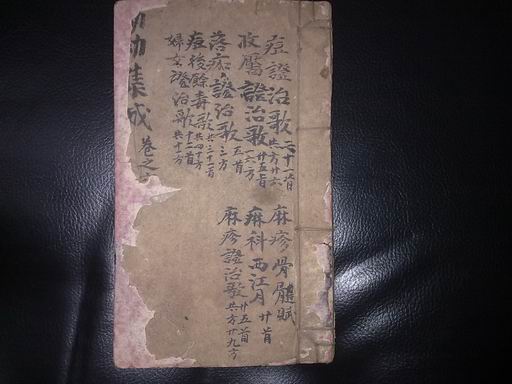 痘證治歌 二十一首 共方廿六
收靨證治歌 廿五首 一六方
落痂證治歌 五首 三方
痘後餘毒歌 共三十一首 共四十方
婦女證治歌 十二首 共十一方
幼集成 卷之
麻疹骨髓賦
麻科西江月 廿首
麻疹證治歌 廿五首 共方廿九方